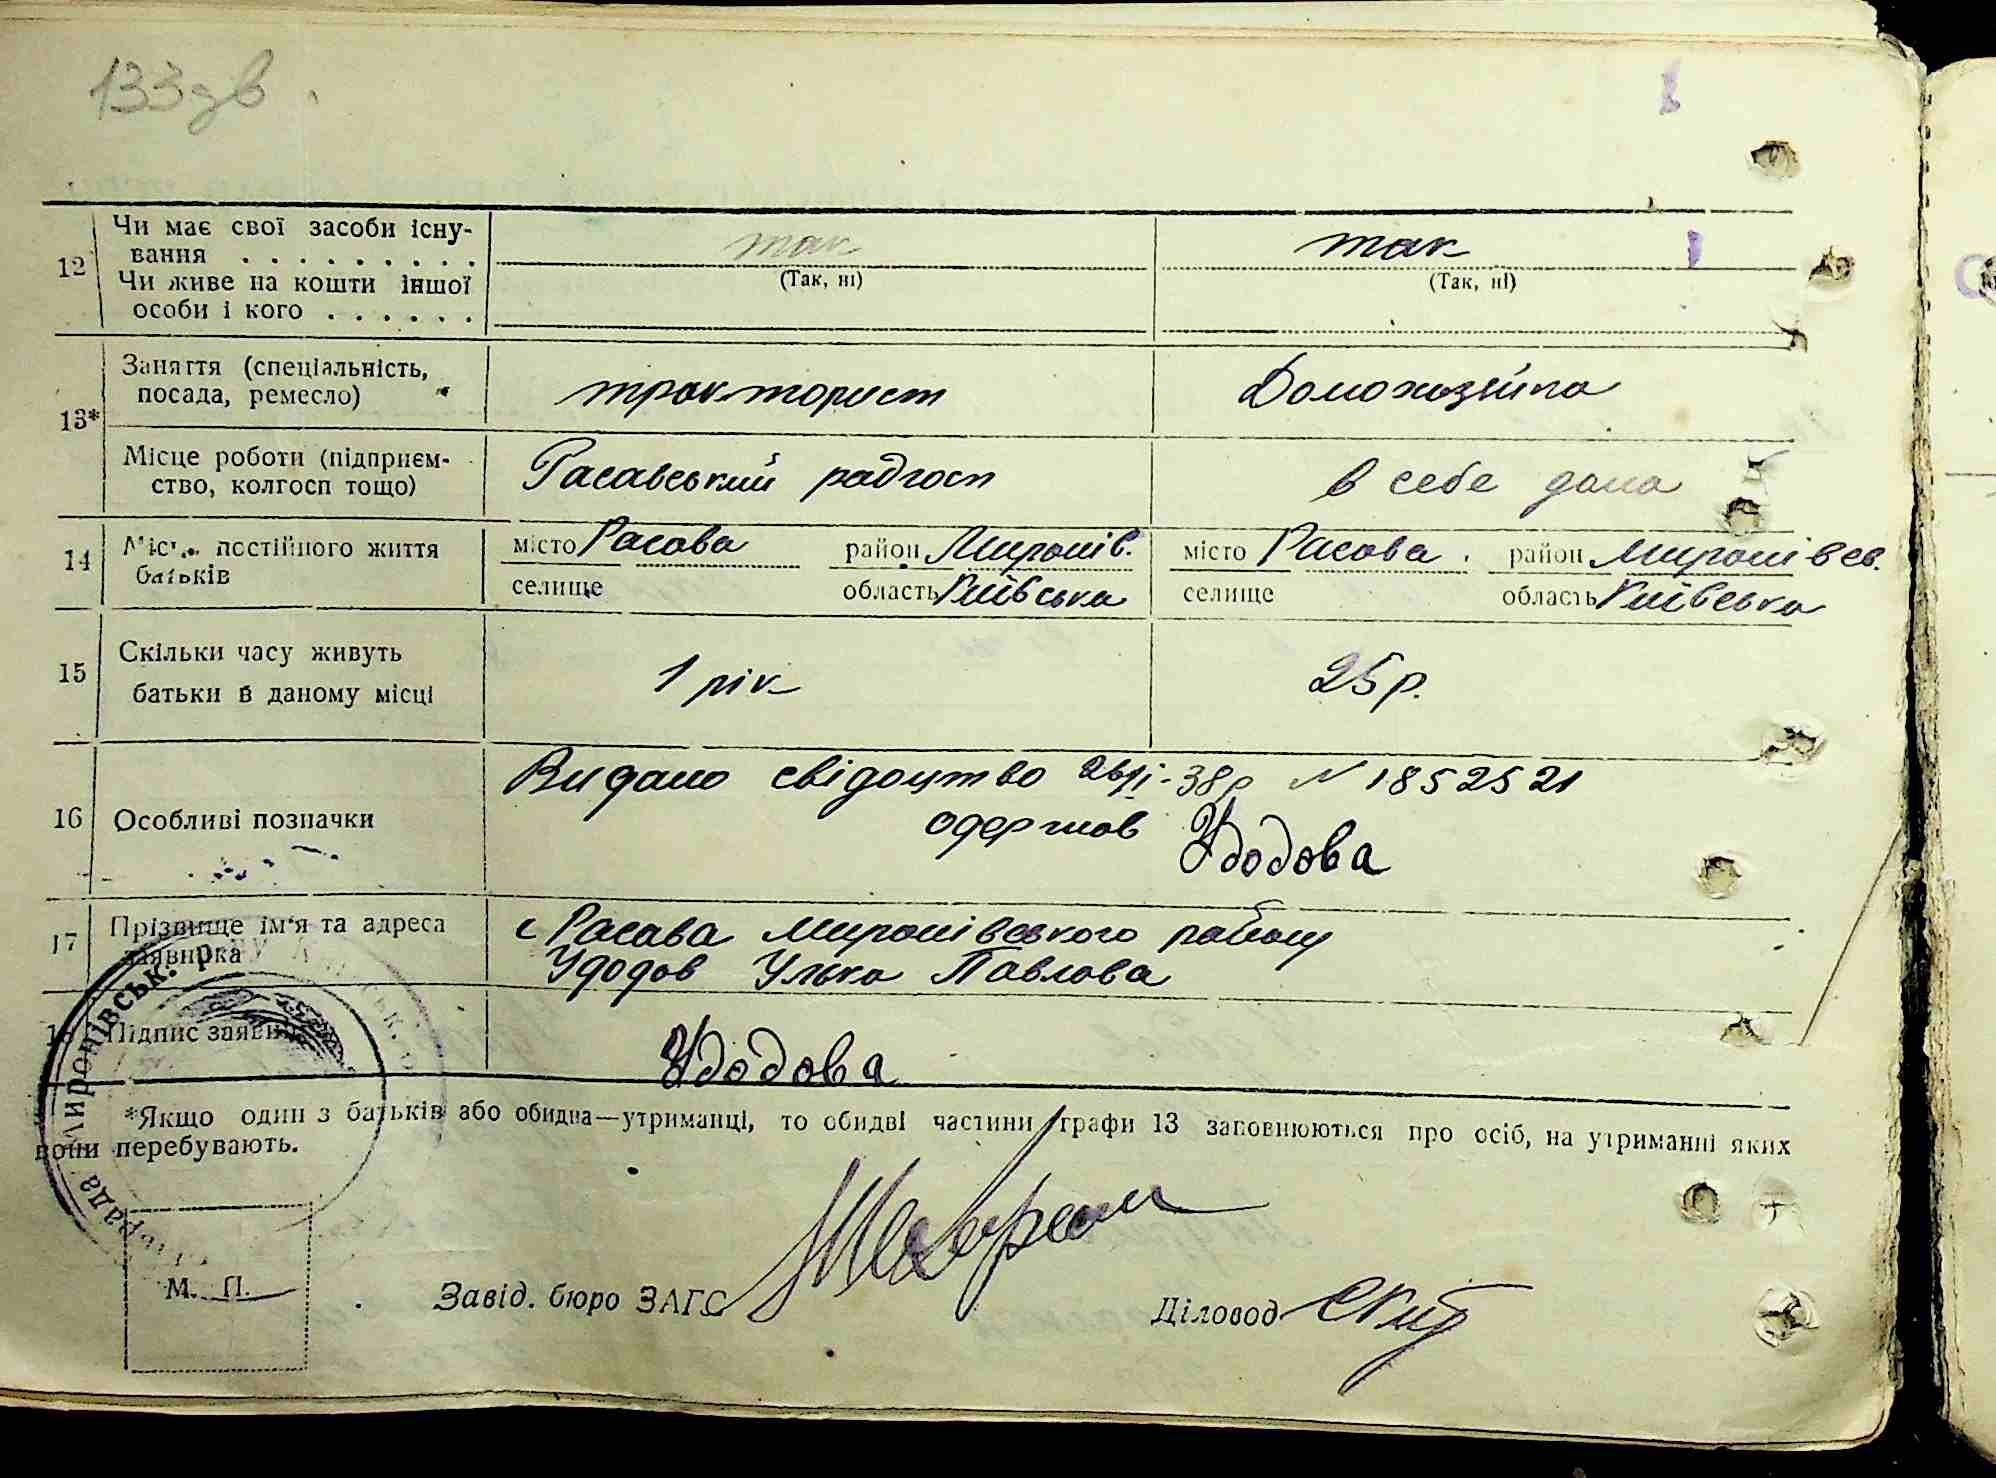 133зв
12
Чи має свої засоби існу-
вання . . . . . . . . .
так
так
(Так, ні)
(Так, ні)
Чи живе на кошти іншої
особи і кого . . . . . .
13*
Заняття (спеціальність,
посада, ремесло)
тракторист
Домохазяйка
Місце роботи (підприєм-
ство, колгосп тощо)
Расавський радгосп
в себе дома
14
постійного життя
батьків
місто Расова район Миронів.
селище область Київська
місто Расова район Миронівсв.
селище область Київська
15
Скільки часу живуть
батьки в даному місці
1 рік
25 р.
16
Особливі позначки
Видано свідоцтво -38р N 1852521
одержав Удодова
17
Прізвище ім'я та адреса
заявника
с Расава Миронівського району
Удодов Улька Павлова
18
Підпис
Удодова
*Якщо один з батьків або обидва—утриманці, то обидві частини графи 13 заповнюються про осіб, на утриманні яких
вони перебувають.
Миронівськ.
рада
М. П.
Завід. бюро ЗАГС
Діловод